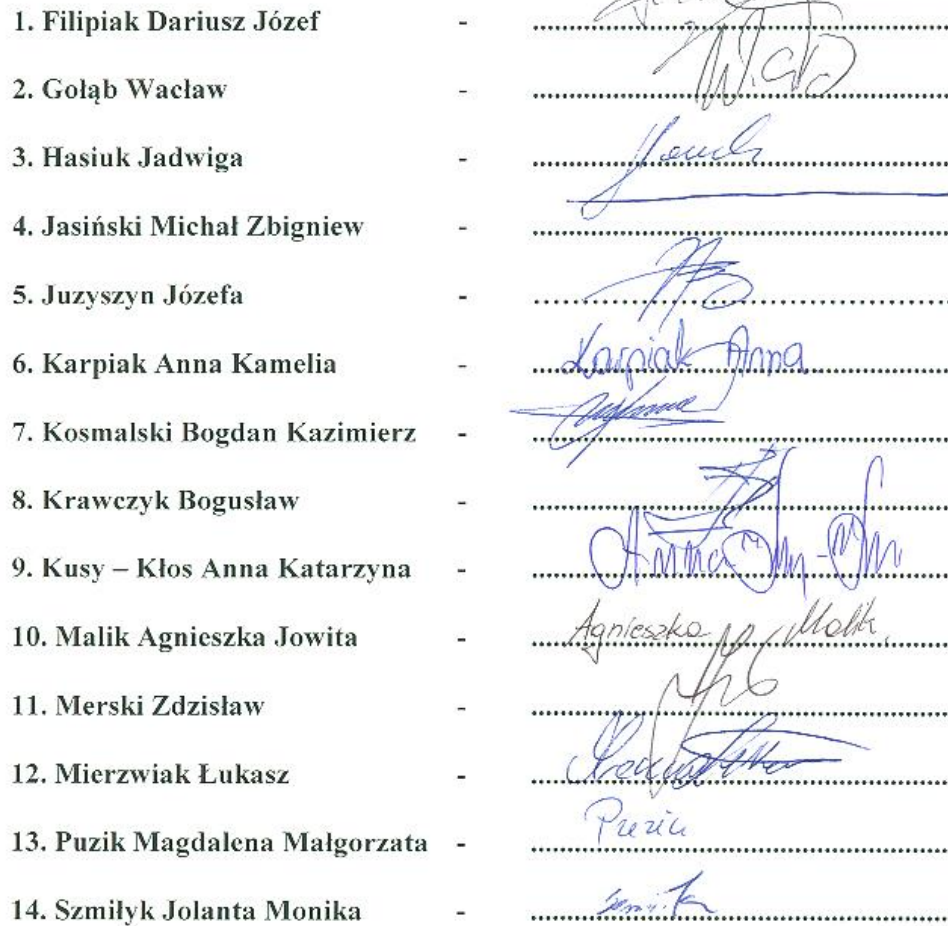 1. Filipiak Dariusz Józef -
2. Gołąb Wacław -
3. Hasiuk Jadwiga -
4. Jasiński Michał Zbigniew -
5. Juzyszyn Józefa -
6. Karpiak Anna Kamelia - Karpiak Anna
7. Kosmalski Bogdan Kazimierz -
8. Krawczyk Bogusław -
9. Kusy – Kłos Anna Katarzyna - Anna
10. Malik Agnieszka Jowita - Agnieszka Malik
11. Merski Zdzisław -
12. Mierzwiak Łukasz -
13. Puzik Magdalena Małgorzata -
14. Szmiłyk Jolanta Monika -